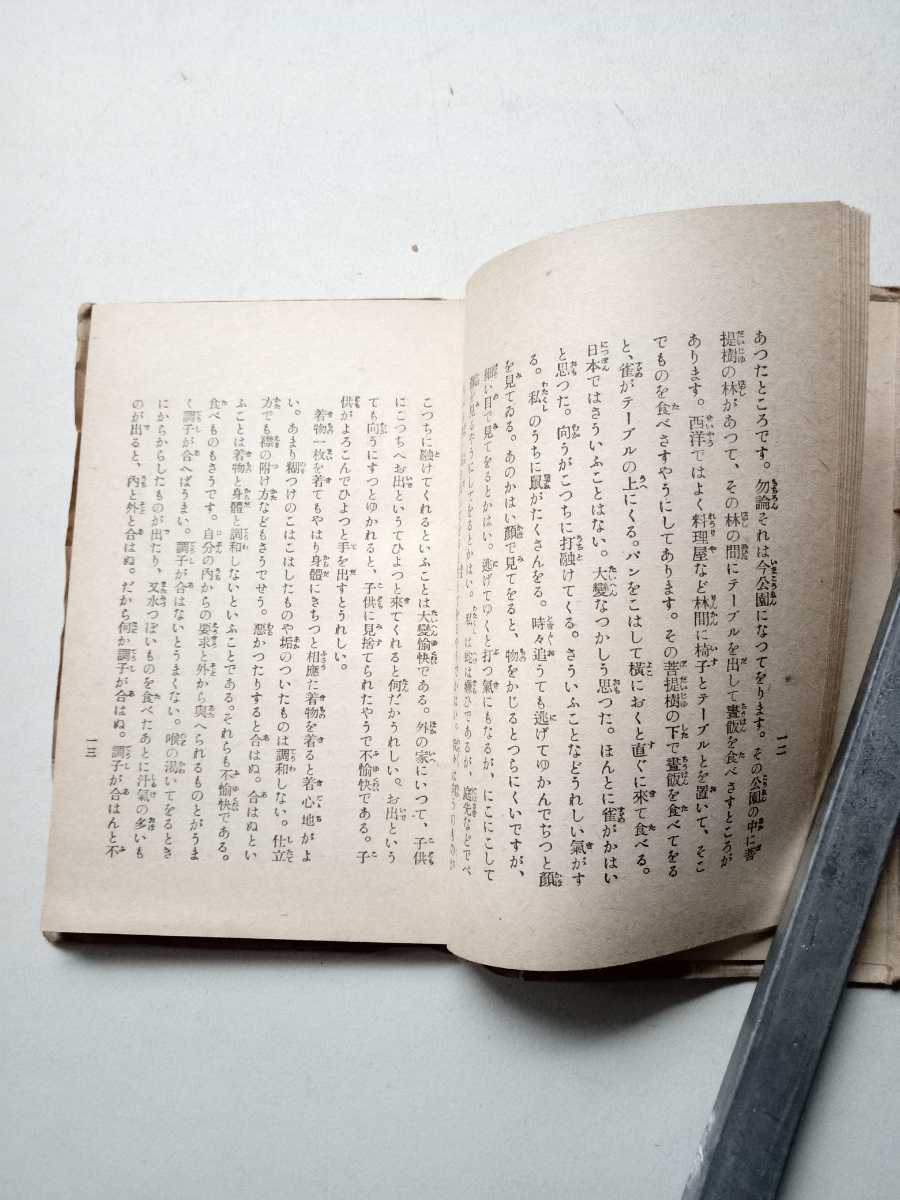 あつたところです。勿論それは今公園になつてをります。その公園の中に菩
提樹の林があつて、その林の間にテーブルを出して晝飯を食べさすところが
あります。西洋ではよく料理屋など林間に椅子とテーブルとを置いて、そこ
でものを食べさすやうにしてあります。その菩提樹の下で晝飯を食べてをる
と、雀がテーブルの上にくる。パンをこはして横におくと直ぐに來て食べる。
日本ではさういふことはない。大變なつかしう思つた。ほんとに雀がかはい
と思つた。向うがこつちに打融けてくる。さういふことなどうれしい氣がす
る。私のうちに鼠がたくさんをる。時々追うても逃げてゆかんでぢつと顏
を見てゐる。あのかはい顏で見てをると、物をかじるとつらにくいですが、
細い目で見てをるとかはい。逃げてゆくと打つ氣にもなるが、にこにこして
顏を見るやうにしてをるとかはい。私は蛇は嫌ひであるが、庭先などでべ
一二
こつちに融けてくれるといふことは大變愉快である。外の家にいつて、子供
にこつちへお出というてひよつと來てくれると何だかうれしい。お出という
ても向うにすつとゆかれると、子供に見捨てられたやうで不愉快である。子
供がよろこんでひよつと手を出すとうれしい。
着物一枚を着てもやはり身體にきちつと相應た着物を着ると着心地がよ
い。あまり糊つけのこはこはしたものや垢のついたものは調和しない。仕立
方でも襟の附け方などもさうでせう。惡かつたりすると合はぬ。合はぬとい
ふことは着物と身體と調和しないといふことである。それらも不愉快である。
食べものもさうです。自分の内からの要求と外から與へられるものとがうま
く調子が合へばうまい。調子が合はないとうまくない。喉の渇いてをるとき
にからからしたものが出たり、又水つぽいものを食べたあとに汁氣の多いも
のが出ると、内と外と合はぬ。だから何か調子が合はぬ。調子が合はんと不
一三